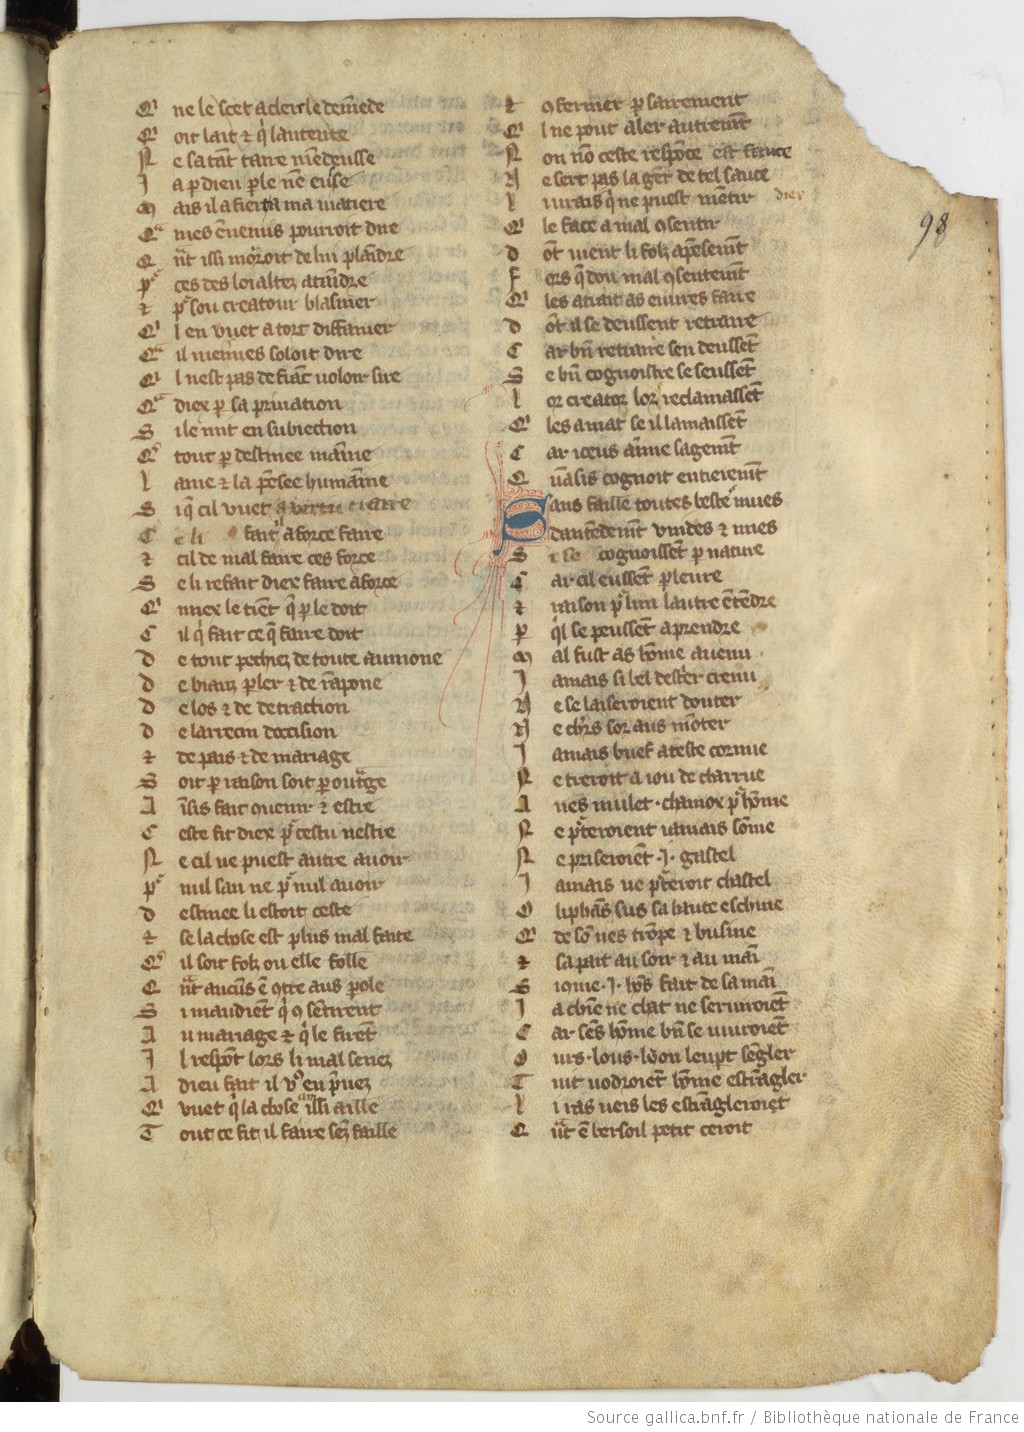 Q' ne le scet a clerc le demede
Q' oit lait ⁊ q̓ lantente
N e sa tãt taire ni nẽ deusse
J a ꝑ dieu ꝑ le nẽ eusse
M ais il a fiert a ma matiere
Qᵃ mes ẽnemis pourroit dire
Q ñt issi morroit de lui plaindre
pʳ ces desloialtez ataindre
⁊ pʳ son creatour blasmer
Q' l en vuet a tort diffamer
Qᵃ il meimes soloit dire
Q' l nest pas de fiãc uoloir sire
Qᵃ diex ꝑ sa priuation
S i le mit en subiection
Qᵉ tout ꝑ destinee maine
L ame ⁊ la pẽsee humaine
S i q̃ cil vuet a vertu traire
C e li fait a force faire
⁊ cil de mal faire ces force
S e li refait diex faire a force
Q' miex le tiẽt q̃ ꝑ le doit
C il q̓ fait ce q̃ faire doit
D e tout pechiez de toute aumone
D e biauz ꝑler ⁊ de rãpone
D e los ⁊ de detraction
D e larrecin doccision
⁊ de pais ⁊ de mariage
S oit ꝑ raison soit ꝑ outᵃge
A ĩsis fait ouenir ⁊ estre
C este fit diex pʳ cestu nestre
N e cil ne puest autre auoir
Pʳ nul san ne pʳ nul auoir
D estinee li estoit ceste
⁊ se la chose est plus mal faite
Qᵉ il soit folz ou elle folle
Q ñt aucuns ẽ ꝯtre aus ꝑole
S i maudient q̓ ꝯ sẽtirent
A u mariage ⁊ q̓ le firẽt
J l respõt lors li mal senez
A dieu fait il vᵒ en pᵉnez
Q' vuet q̓ la chose ainssi aille
T out ce fit il faire sẽz faille
⁊ ꝯfermer ꝑ sairement
Q' l ne pout aler autremẽt
N on nõ ceste respõce est fauce
N e sert pas la gẽt de tel sauce
L i urais q̓ ne puest mẽtir diex
Q' le face a mal ꝯsentir
D õt uient li folz apẽsemẽt
F ors q̃ dou mal ꝯsentemẽt
Q' les atrait as euures faire
D õt il se deussent retraire
C ar bñ retraire sen deussẽt
S e bñ cognoistre se seussẽt
L or creator lorz reclamassẽt
Q' les amat se il lamaissẽt
C ar iceus aimme sagemẽt
Q ñ alis cognoit entieremẽt
S ans faille toutes bestes mues
Dantẽdemẽt vuides ⁊ nues
S i se cognoissẽt ꝑ nature
C ar cil eussẽt ꝑleure
⁊ raison pʳ lun lautre ẽtẽdre
P q̓l se peussẽt aprendre
M al fust as hõme auenu
J amais si bel destᵉer crenu
N e se laiseroient donter
N e ch'rs sor aus mõter
J amais buef a teste cornue
N e treroit a iou de charrue
A nes mulet · chamox pʳ hõme
N e pʳteroient iamais sõme
N e priseroiẽt · j · gastel
J amais ne pʳteroit chastel
O liphãs sus sa haute eschine
Q' de sõ nes trõpe ⁊ busine
⁊ sa pait au soir ⁊ au maĩ
S i ꝯme · j · hõs fait de sa maĩ
J a chiẽ ne chat ne seruiroiẽt
C ar sẽs hõme bñ se uiuroiẽt
O urs · lous · lyon leupt sẽgler
T uit uodroiẽt hõme estrãgler
L i ras neis les estrãgleroiẽt
Q ñt ẽ bersoil petit ceroit
98
Source gallica.bnf.fr / Bibliothèque nationale de France